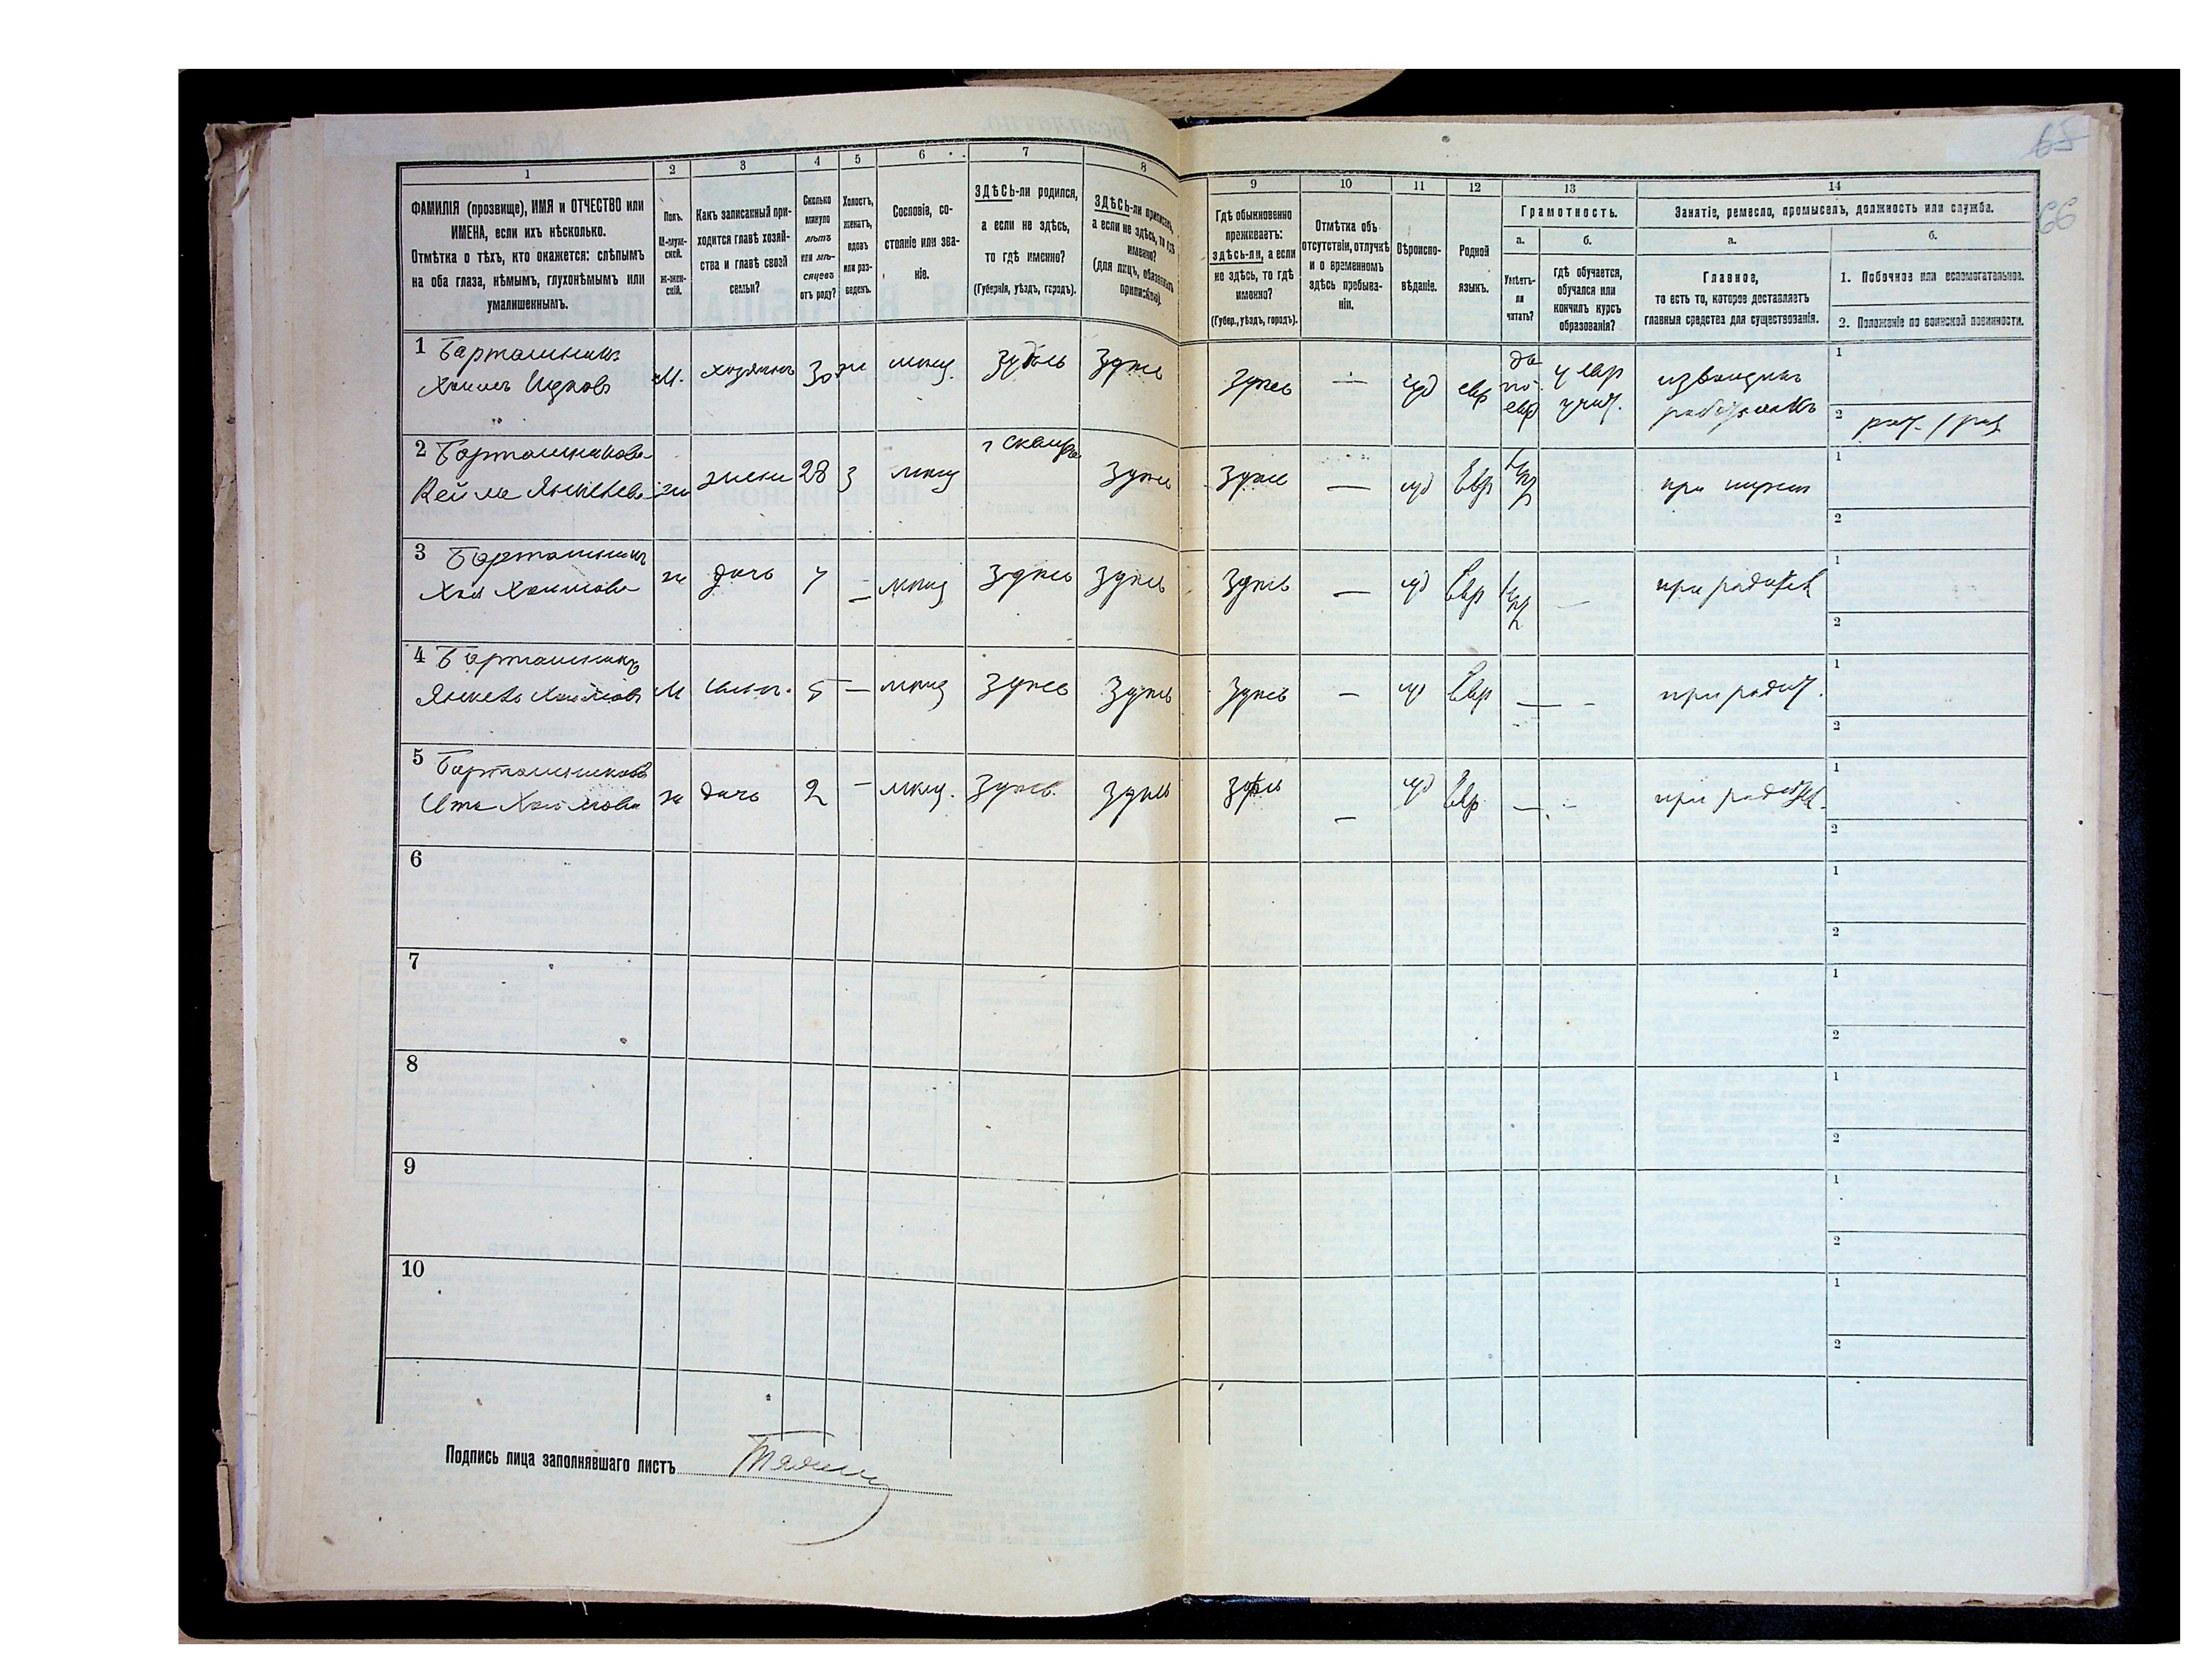 65
66
1 2 3 4 5 6 7 8 9 10 11 12 13 14
ФАМИЛІЯ (прозвище), ИМЯ и ОТЧЕСТВО или
ИМЕНА, если ихъ нѣсколько.
Отмѣтка о тѣхъ, кто окажется: слѣпымъ
на оба глаза, нѣмымъ, глухонѣмымъ или
умалишеннымъ.
Полъ.
М-муж-
ской.
Ж-жен-
скій.
Какъ записанный при-
ходится главѣ хозяй-
ства и главѣ своей
семьи?
Сколько
минуло
лѣтъ
или мѣ-
сяцевъ
отъ роду?
Холостъ,
женатъ,
вдовъ
или раз-
веденъ.
Сословіе, со-
стояніе или зва-
ніе.
ЗДѢСЬ-ли родился,
а если не здѣсь,
то гдѣ именно?
(Губернія, уѣздъ, городъ).
ЗДѢСЬ-ли приписанъ,
а если не здѣсь, то гдѣ
именно?
(для лицъ, обязанныхъ
припискою).
Гдѣ обыкновенно
проживаетъ:
здѣсь-ли, а если
не здѣсь, то гдѣ
именно?
(Губер., уѣздъ, городъ).
Отмѣтка объ
отсутствіи, отлучкѣ
и о временномъ
здѣсь пребыва-
ніи.
Вѣроиспо-
вѣданіе.
Родной
языкъ.
Грамотность.
а.
Умѣетъ-
ли
читать?
б.
гдѣ обучается,
обучался или
кончилъ курсъ
образованія?
Занятіе, ремесло, промыселъ, должность или служба.
а.
Главное,
то есть то, которое доставляетъ
главныя средства для существованія.
б.
1. Побочное или вспомогательное.
2. Положеніе по воинской повинности.
1 Барташникъ
Хаимъ Ицковъ М. хозяинъ 30 ж мѣщ. здѣсь здѣсь здѣсь — іуд евр да по-евр у евр учит. извощикъ 1
2
2 Барташникова
Янкелева ж жена 28 з мѣщ г Сквира здѣсь здѣсь — іуд Евр нѣт при мужѣ 1
2
3 Барташникъ
Хая Хаимова ж дочь 7 — мѣщ здѣсь здѣсь здѣсь — іуд Евр нѣт — при родител 1
2
4 Барташникъ
Янкель Хаимовъ М сынъ. 5 — мѣщ здѣсь здѣсь здѣсь — іуд Евр — - при родит. 1
2
5 Барташникова
Ита Хаимова ж дочь 2 — мѣщ. здѣсь здѣсь здѣсь — іуд Евр — - при родител. 1
2
6 1
2
7 1
2
8 1
2
9 1
2
10 1
2
Подпись лица заполнявшаго листъ